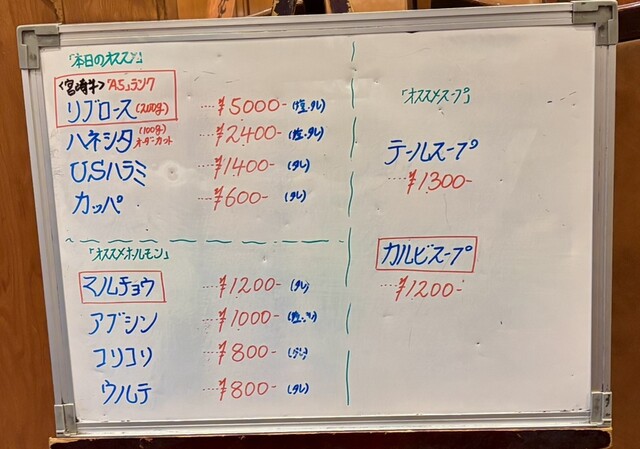 「本日のオススメ」
〈宮崎牛〉「A5」ランク
リブロース (200g) ……¥5000- (塩・タレ)
ハネシタ (100g) オーダーカット ……¥2,400- (塩・タレ)
U.Sハラミ ……¥1400- (タレ)
カッパ ……¥600- (タレ)
「オススメホルモン」
マルチョウ ……¥1200- (タレ)
アブシン ……¥1000- (塩・タレ)
コリコリ ……¥800- (タレ)
ウルテ ……¥800- (タレ)
「オススメスープ」
テールスープ
……¥1,300-
カルビスープ
……¥1200-